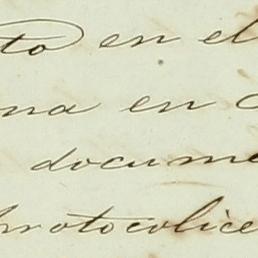 to en el
na en
docume
protocolice